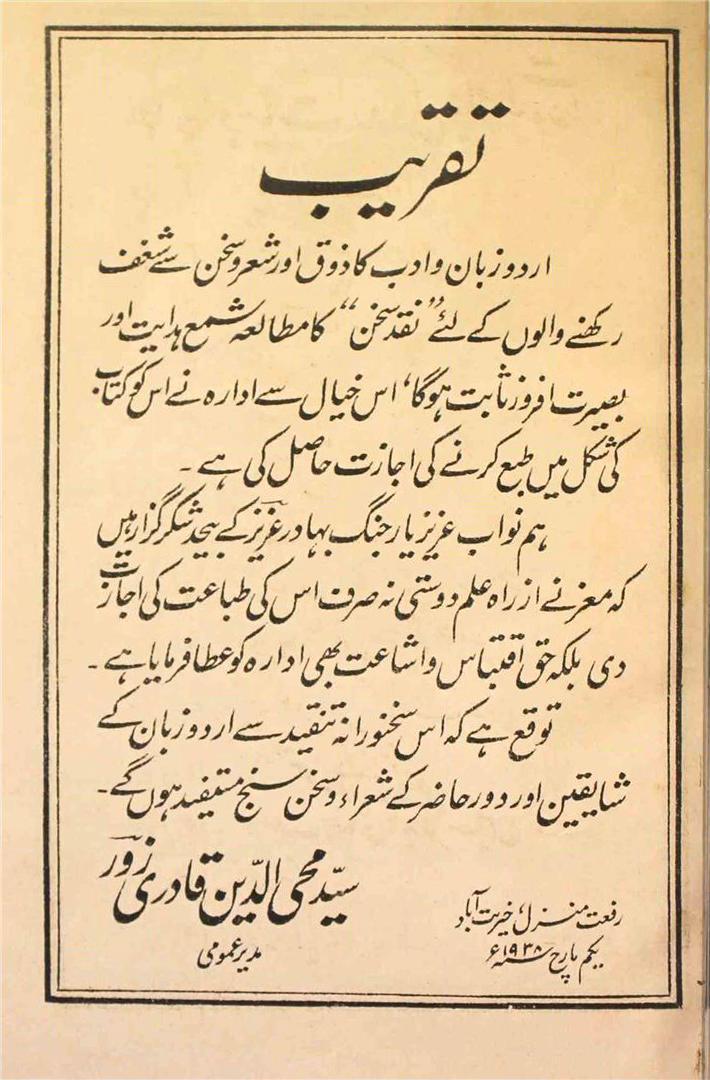 تقریب
اردو زبان و ادب کا ذوق اور شعر و سخن سے شغف
رکھنے والوں کے لئے "نقد سخن" کا مطالعہ شمع ہدایت اور
بصیرت افروز ثابت ہوگا، اس خیال سے ادارہ نے اس کو کتاب
کی شکل میں طبع کرنے کی اجازت حاصل کی ہے۔
ہم نواب عزیز یار جنگ بہادر عزیزؔ کے بیحد شکر گزار ہیں
کہ معز نے از راہ علم دوستی نہ صرف اس کی طباعت کی اجازت
دی بلکہ حق اقتباس و اشاعت بھی ادارہ کو عطا فرمایا ہے۔
توقع ہے کہ اس سخنورانہ تنقید سے اردو زبان کے
شایقین اور دور حاضر کے شعراء و سخن سنج مستفید ہوں گے۔
سیّد محی الدّین قادری زورؔ
مدیر عمومی
رفعت منزل، خیرت آباد
یکم مارچ سنہ ۱۹۳۸ء